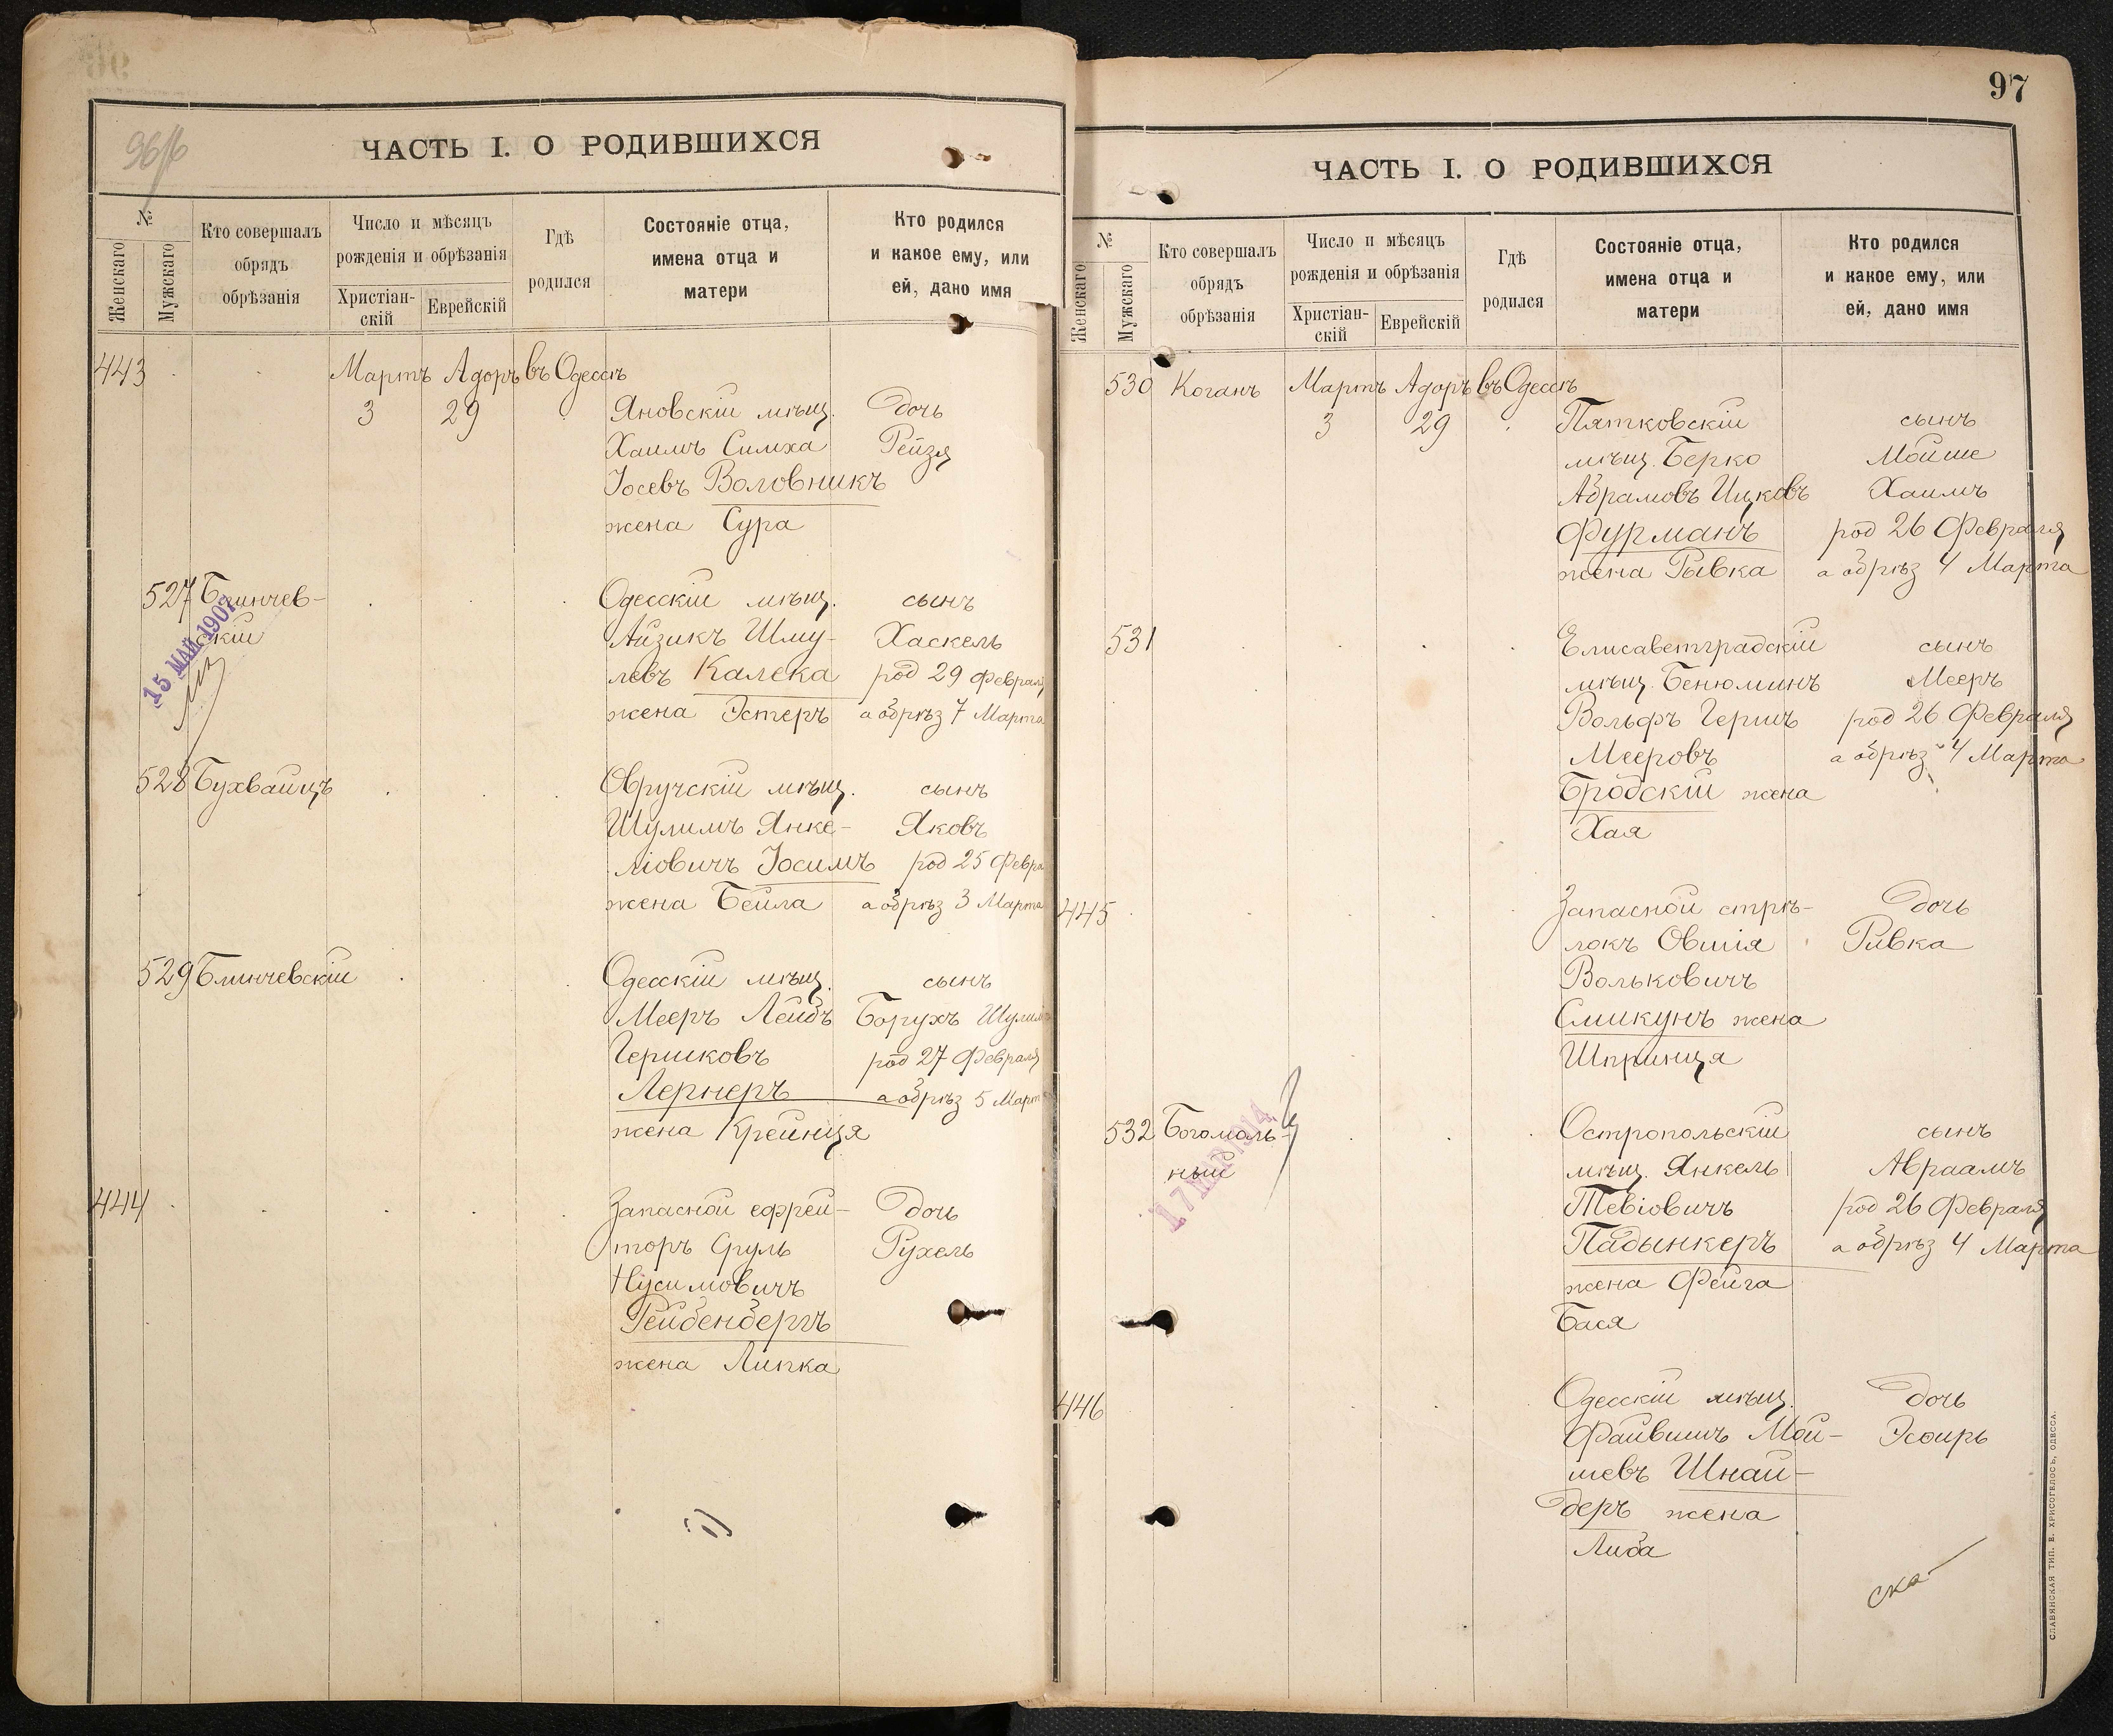 96/б
ЧАСТЬ I. О РОДИВШИХСЯ
№
Женскаго
Мужскаго
Кто совершалъ
обрядъ
обрѣзанія
Число и мѣсяцъ
рожденія и обрѣзанія
Христіан-
скій
Еврейскій
Гдѣ
родился
Состояніе отца,
имена отца и
матери
Кто родился
и какое ему, или
ей, дано имя
443 Мартъ Адоръ въ Одессѣ
3 29 Яновскій мѣщ. дочь
Хаимъ Симха Рейзя
Іосевъ Воловникъ
жена Сура
527 Блинчев- Одесскій мѣщ. сынъ
скій Айзикъ Шму- Хаскель
левъ Калека род 29 Февраля
жена Эстеръ а обрѣз 7 Марта
15 МАЙ 1907
528 Бухвайцъ Овручскій мѣщ. сынъ
Шулимъ Янке- Яковъ
ліовичъ Іосимъ род 25 Февра
жена Бейла а обрѣз 3 Марта
529 Блинчевскій Одесскій мѣщ. сынъ
Мееръ Лейбъ Борухъ Шулим
Гершковъ род 27 Февраля
Лернеръ а обрѣз 5 Март
жена Крейнця
444 Запасной ефрей- дочь
торъ Сруль Рухель
Нусимовичъ
Рейбенбергъ
жена Липка
97
ЧАСТЬ I. О РОДИВШИХСЯ
№
Женскаго
Мужскаго
Кто совершалъ
обрядъ
обрѣзанія
Число и мѣсяцъ
рожденія и обрѣзанія
Христіан-
скій
Еврейскій
Гдѣ
родился
Состояніе отца,
имена отца и
матери
Кто родился
и какое ему, или
ей, дано имя
530 Коганъ Мартъ Адоръ въ Одессѣ
3 29 Пятковскій сынъ
мѣщ. Берко Мойше
Абрамовъ Ицковъ Хаимъ
Фурманъ род 26 Февраля
жена Рывка а обрѣз 4 Марта
531 Елисаветградскій сынъ
мѣщ. Бенюминъ Мееръ
Вольфъ Гершъ род 26 Февраля
Мееровъ а обрѣз 4 Марта
Бродскій жена
Хая
445 Запасной стрѣ- дочь
локъ Овшія Ривка
Вольковичъ
Смикунъ жена
Шпринця
532 Богомоль- Остропольскій сынъ
ный мѣщ. Янкель Авраамъ
Тевіовичъ род 26 Февраля
Падынкеръ а обрѣз 4 Марта
жена Фейга
Бася
17 МАР 1914
446 Одесскій мѣщ. дочь
Файвишъ Мой- Эсѳирь
шевъ Шнай-
деръ жена
Либа
ска-
СЛАВЯНСКАЯ ТИП. Е. ХРИСОГЕЛОСЪ, ОДЕССА.